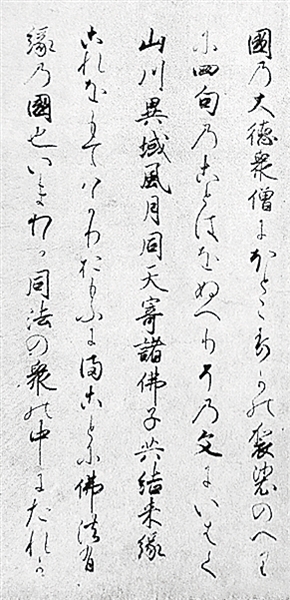 國乃大德衆僧にほとこ袈裟のへり
に四句乃ことはをぬへりその文にいはく
山川異域風月同天寄諸佛子共結来縁
これをもてはかりおもふにまことに佛法有
縁乃國也いまわか同法の衆の中にたれか